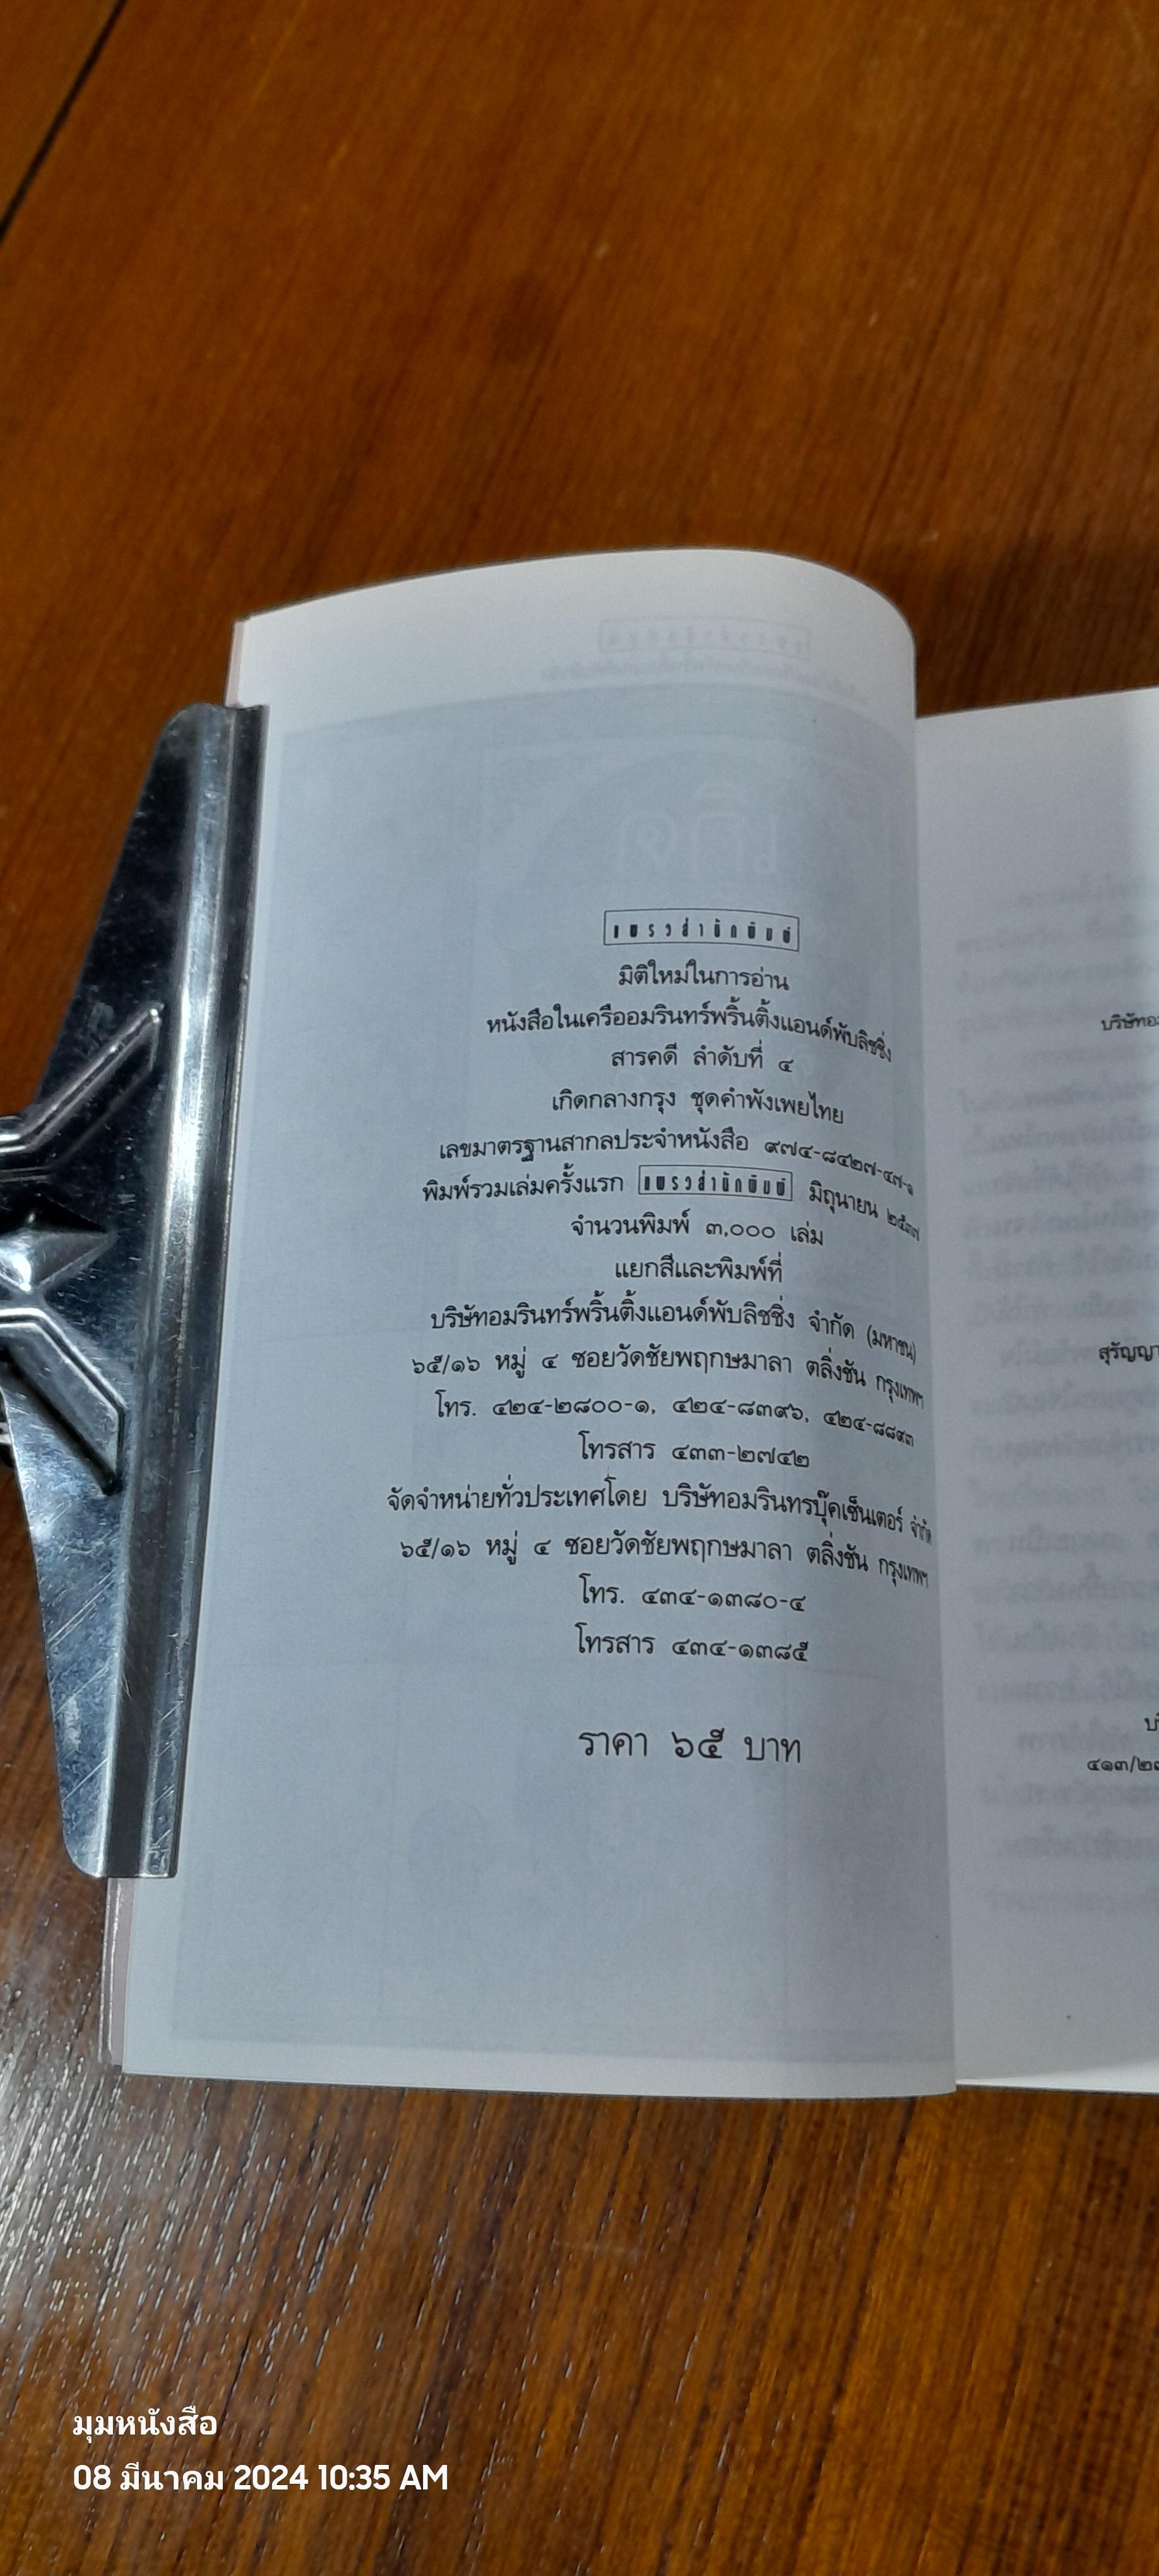 แพรวสำนักพิมพ์
มิติใหม่ในการอ่าน
หนังสือในเครืออมรินทร์พริ้นติ้งแอนด์พับลิชชิ่ง
สารคดี ลำดับที่ ๔
เกิดกลางกรุง ชุดคำพังเพยไทย
เลขมาตรฐานสากลประจำหนังสือ ๙๗๔-๘๔๒๗-๔๗-๑
พิมพ์รวมเล่มครั้งแรก แพรวสำนักพิมพ์ มิถุนายน ๒๕๓๗
จำนวนพิมพ์ ๓,๐๐๐ เล่ม
แยกสีและพิมพ์ที่
บริษัทอมรินทร์พริ้นติ้งแอนด์พับลิชชิ่ง จำกัด (มหาชน)
๖๕/๑๖ หมู่ ๔ ซอยวัดชัยพฤกษมาลา ตลิ่งชัน กรุงเทพฯ
โทร. ๔๒๔-๒๘๐๐-๑, ๔๒๔-๘๓๙๖, ๔๒๔-๘๘๙๓
โทรสาร ๔๓๓-๒๗๔๒
จัดจำหน่ายทั่วประเทศโดย บริษัทอมรินทรบุ๊คเซ็นเตอร์ จำกัด
๖๕/๑๖ หมู่ ๔ ซอยวัดชัยพฤกษมาลา ตลิ่งชัน กรุงเทพฯ
โทร. ๔๓๔-๑๓๘๐-๔
โทรสาร ๔๓๔-๑๓๘๕
ราคา ๖๕ บาท
บริษัทอม
สุรัญญา
บริ
๔๑๓/๒๓
มุมหนังสือ
08 มีนาคม 2024 10:35 AM